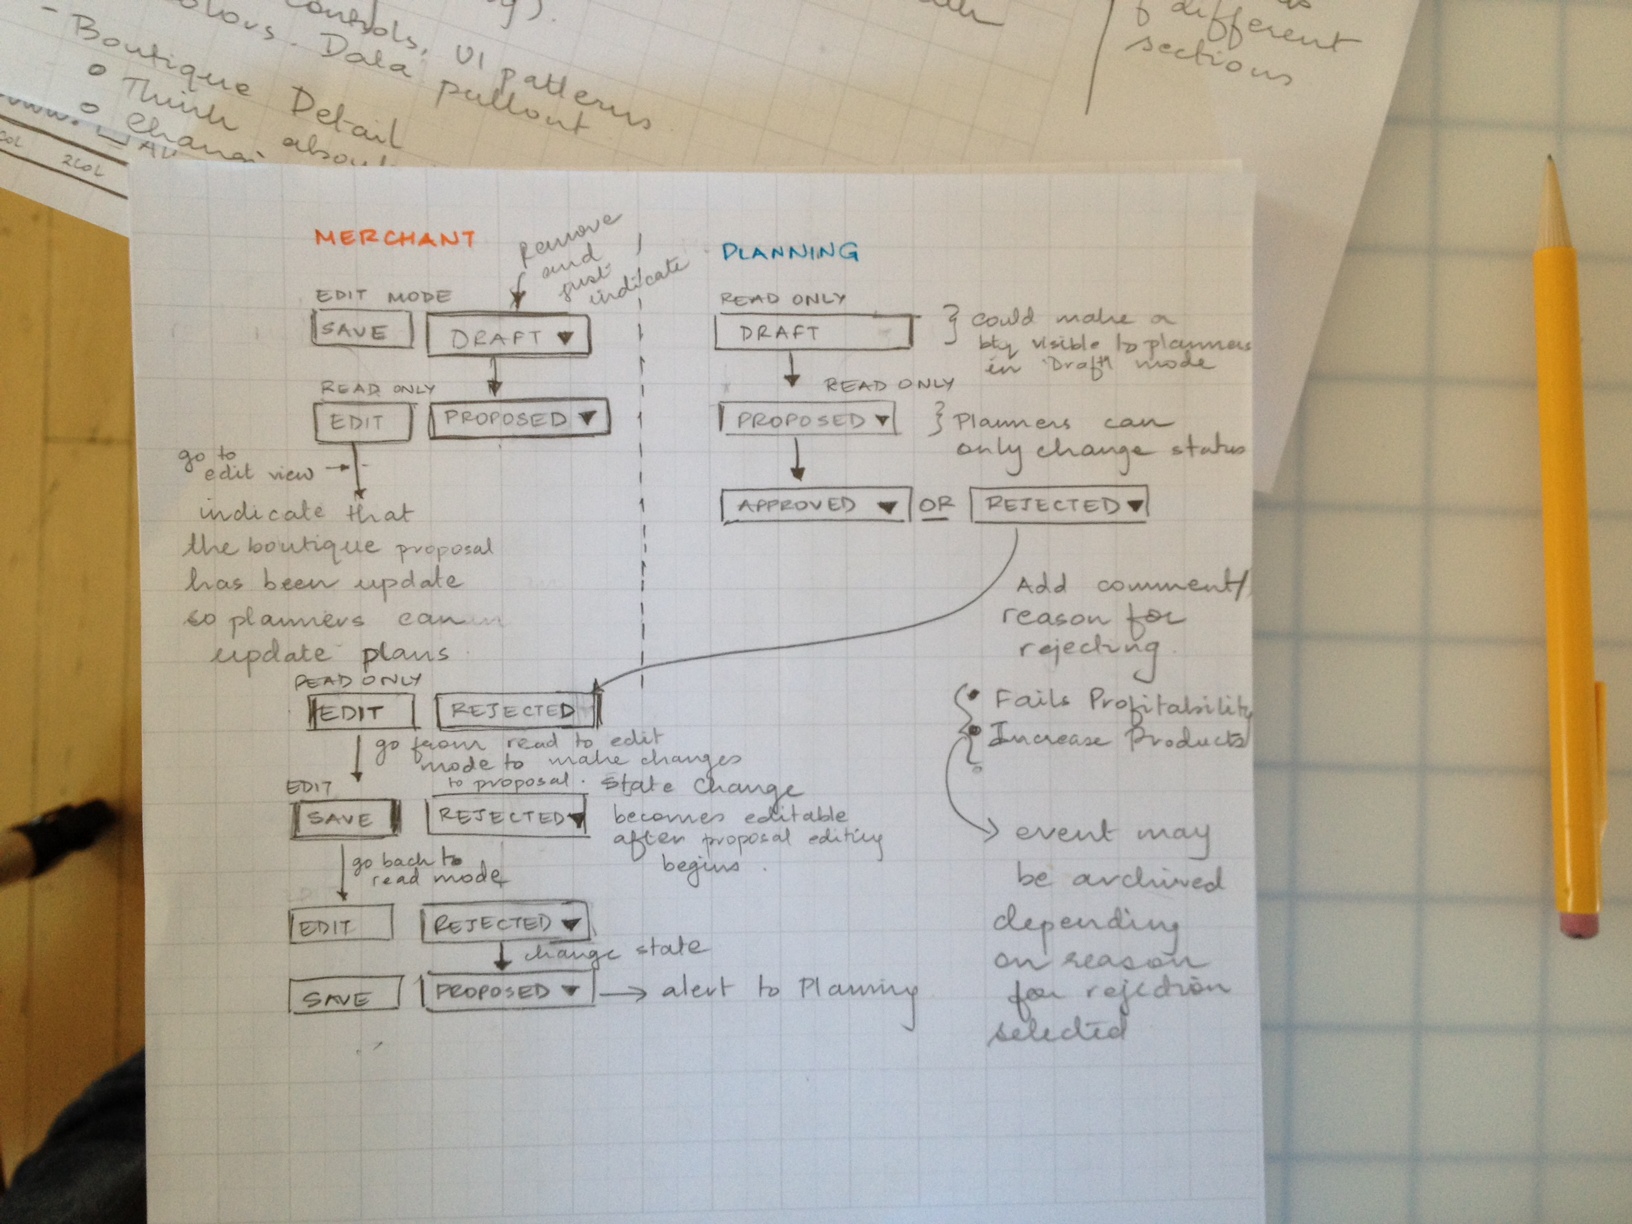 controls, UI patterns
colors. Data pullout
- Boutique Detail
o Think
o Change about
2COL
different
sections
MERCHANT
Remove
and
just
indicate
EDIT MODE
SAVE
DRAFT
READ ONLY
EDIT
PROPOSED
go to
edit view
indicate that
the boutique proposal
has been update
so planners can
update plans
READ ONLY
EDIT
REJECTED
go from read to edit
mode to make changes
to proposal.
EDIT
SAVE
REJECTED
State Change
becomes editable
after proposal editing
begins.
go back to
read mode
EDIT
REJECTED
change state
SAVE
PROPOSED
alert to Planning
PLANNING
READ ONLY
DRAFT
} could make a
btq visible to planners
in "Draft" mode
READ ONLY
PROPOSED
} Planners can
only change status
APPROVED
OR
REJECTED
Add comment/
reason for
rejecting.
• Fails Profitability
• Increase Products
event may
be archived
depending
on reason
for rejection
selected